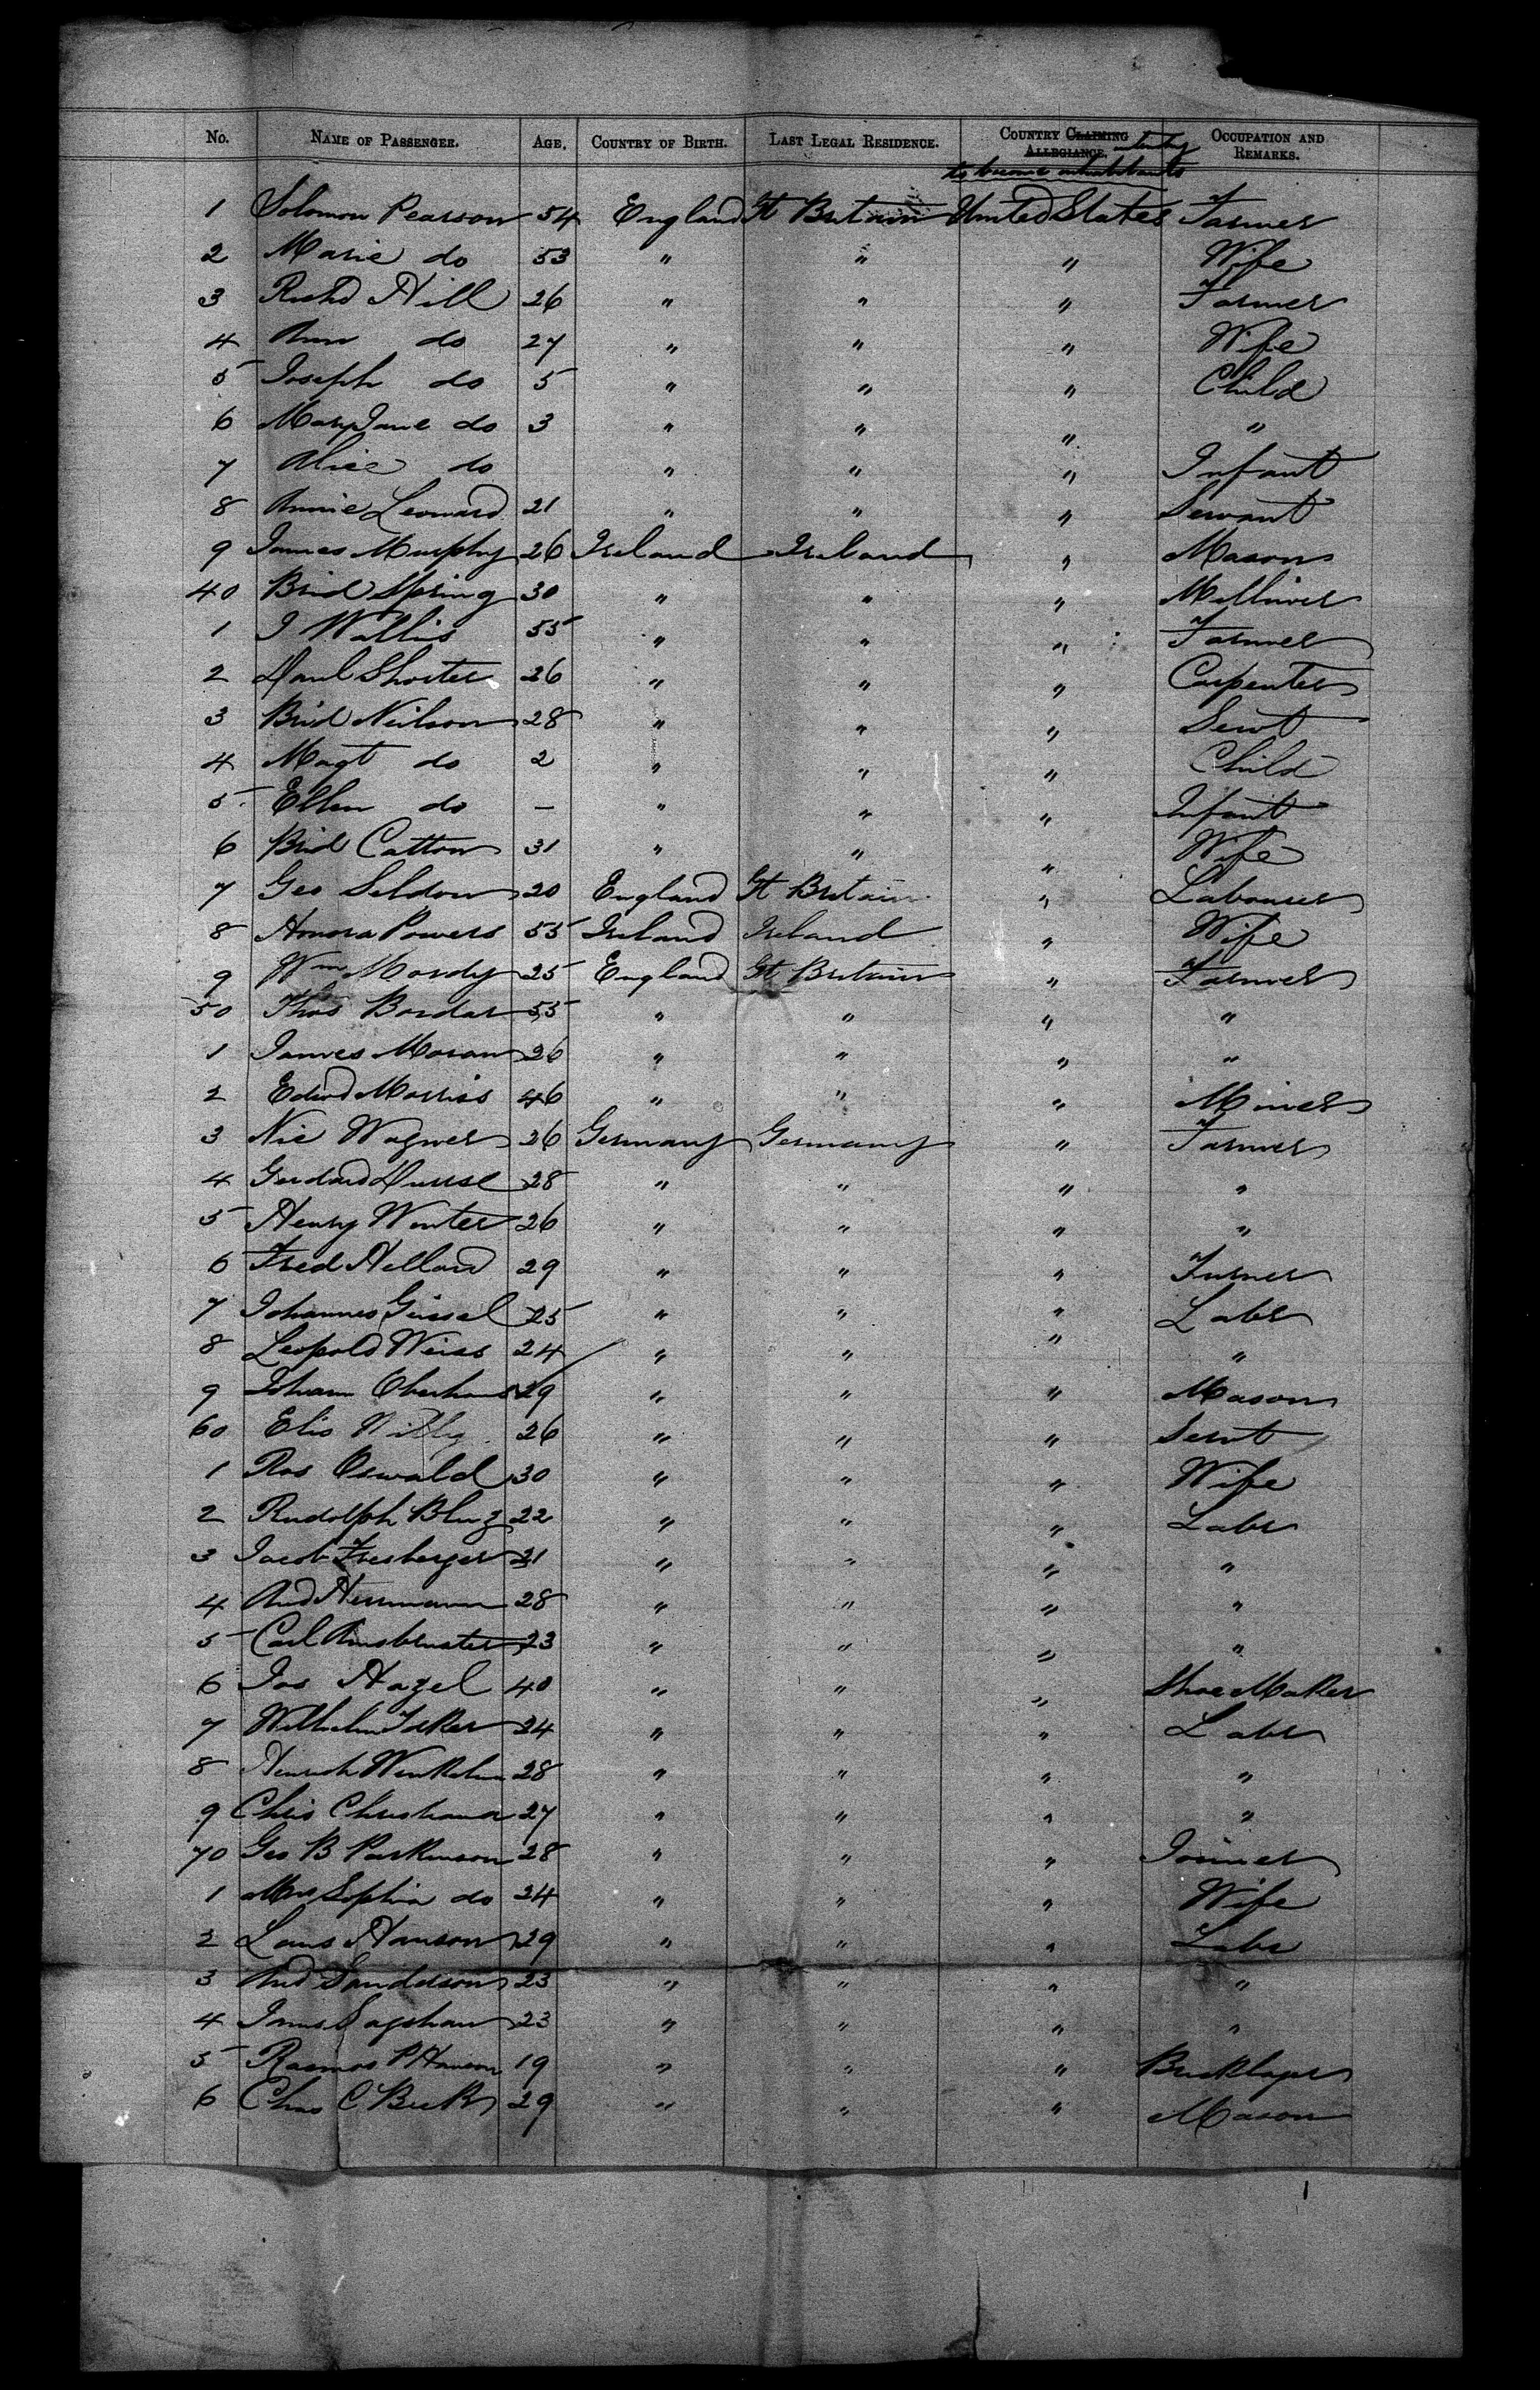 No. NAME OF PASSENGER. AGE. COUNTRY OF BIRTH. LAST LEGAL RESIDENCE. COUNTRY CLAIMING ALLEGIANCE. OCCUPATION AND REMARKS.
to become inhabitants
1 Solomon Pearson 54 England Gt Britain United States Farmer
2 Marie do 53 " " " Wife
3 Richd Hill 26 " " " Farmer
4 Ann do 27 " " " Wife
5 Joseph do 5 " " " Child
6 Mary Jane do 3 " " " "
7 Alice do " " " Infant
8 Annie Leonard 21 " " " Servant
9 James Murphy 26 Ireland Ireland " Mason
40 Brid Spring 30 " " " Milliner
1 J Wallis 55 " " " Farmer
2 Danl Shorter 26 " " " Carpenter
3 Brid Neilson 28 " " " Servt
4 Magt do 2 " " " Child
5 Ellen do — " " " Infant
6 Brid Catton 31 " " " Wife
7 Geo Seldon 20 England Gt Britain " Labourer
8 Honora Powers 55 Ireland Ireland " Wife
9 Wm Mordy 25 England Gt Britain " Farmer
50 Thos Bordar 55 " " " "
1 James Moran 26 " " " "
2 Edwd Morriss 46 " " " Miner
3 Nic Wagner 26 Germany Germany " Farmer
4 28 " " " "
5 Henry Winter 26 " " " "
6 Fred Hellard 29 " " " Turner
7 Johannes Geissel 25 " " " Labr
8 Leopold Weiss 24 " " " "
9 Johann 29 " " " Mason
60 Elis Willy 26 " " " Servt
1 Ros Oswald 30 " " " Wife
2 Rudolph 22 " " " Labr
3 Jacob 21 " " " "
4 And Herrmann 28 " " " "
5 Carl 23 " " " "
6 Jos Hazel 40 " " " Shoe Maker
7 Wilhelm 24 " " " Labr
8 28 " " " "
9 Chris 27 " " " "
70 Geo B Parkinson 28 " " " Joiner
1 Mrs Sophia do 24 " " " Wife
2 Hanson 29 " " " Labr
3 And Sanderson 23 " " " "
4 23 " " " "
5 Rasmos P Hanson 19 " " " Bricklayer
6 Chas C Beck 29 " " " Mason